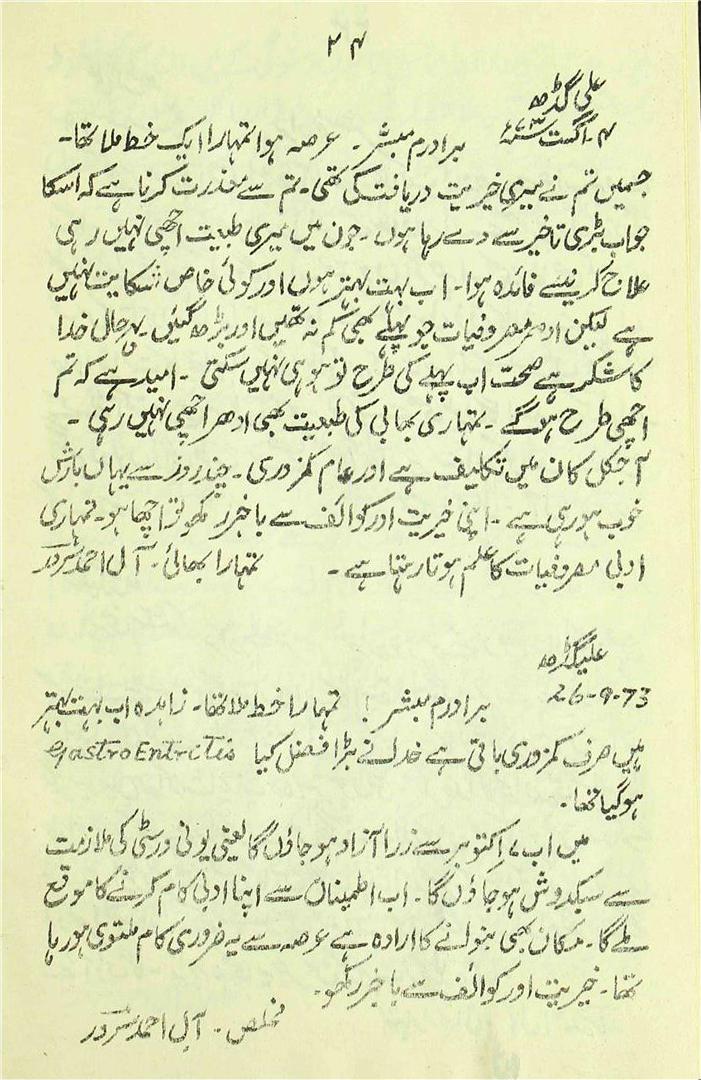 ۲۴
علی گڑھ
۴ ۔ اگست ۷۳ء
برادرم مبشر ۔ عرصہ ہوا تمہارا ایک خط ملا تھا ۔
جسمیں تم نے میری خیریت دریافت کی تھی ۔ تم سے معذرت کرنا ہے کہ اسکا
جواب بڑی تاخیر سے دے رہا ہوں ۔ جون میں میری طبیعت اچھی نہیں رہی
علاج کرنیسے فائدہ ہوا ۔ اب بہت بہتر ہوں اور کوئی خاص شکایت نہیں
ہے لیکن ادھر مصروفیات جو پہلے بھی کم نہ تھیں اور بڑھ گئیں ۔ بہرحال خدا
کا شکر ہے صحت اب پہلے کی طرح تو ہو ہی نہیں سکتی ۔ امید ہے کہ تم
اچھی طرح ہوگے ۔ تمہاری بھابی کی طبعیت بھی ادھر اچھی نہیں رہی ۔
آجکل کان میں تکلیف ہے اور عام کمزوری ۔ چند روز سے یہاں بارش
خوب ہو رہی ہے ۔ اپنی خیریت اور کوائف سے باخبر رکھو تو اچھا ہو ۔ تمہاری
ادبی مصروفیات کا علم ہوتا رہتا ہے ۔ تمہارا بھائی ۔ آل احمد سرور
علیگڑھ
26-9-73
برادرم مبشر ! تمہارا خط ملا تھا ۔ زاہدہ اب بہت بہتر
ہیں صرف کمزوری باقی ہے خدا نے بڑا فضل کیا GastroEntritis
ہوگیا تھا ۔
میں اب ۷ اکتوبر سے ذرا آزاد ہو جاؤں گا یعنی یونی ورسٹی کی ملازمت
سے سبکدوش ہو جاؤں گا ۔ اب اطمینان سے اپنا ادبی کام کرنے کا موقع
ملے گا ۔ مکان بھی بنوانے کا ارادہ ہے عرصہ سے یہ ضروری کام ملتوی ہو رہا
تھا ۔ خیریت اور کوائف سے باخبر رکھو ۔
مخلص ۔ آل احمد سرور